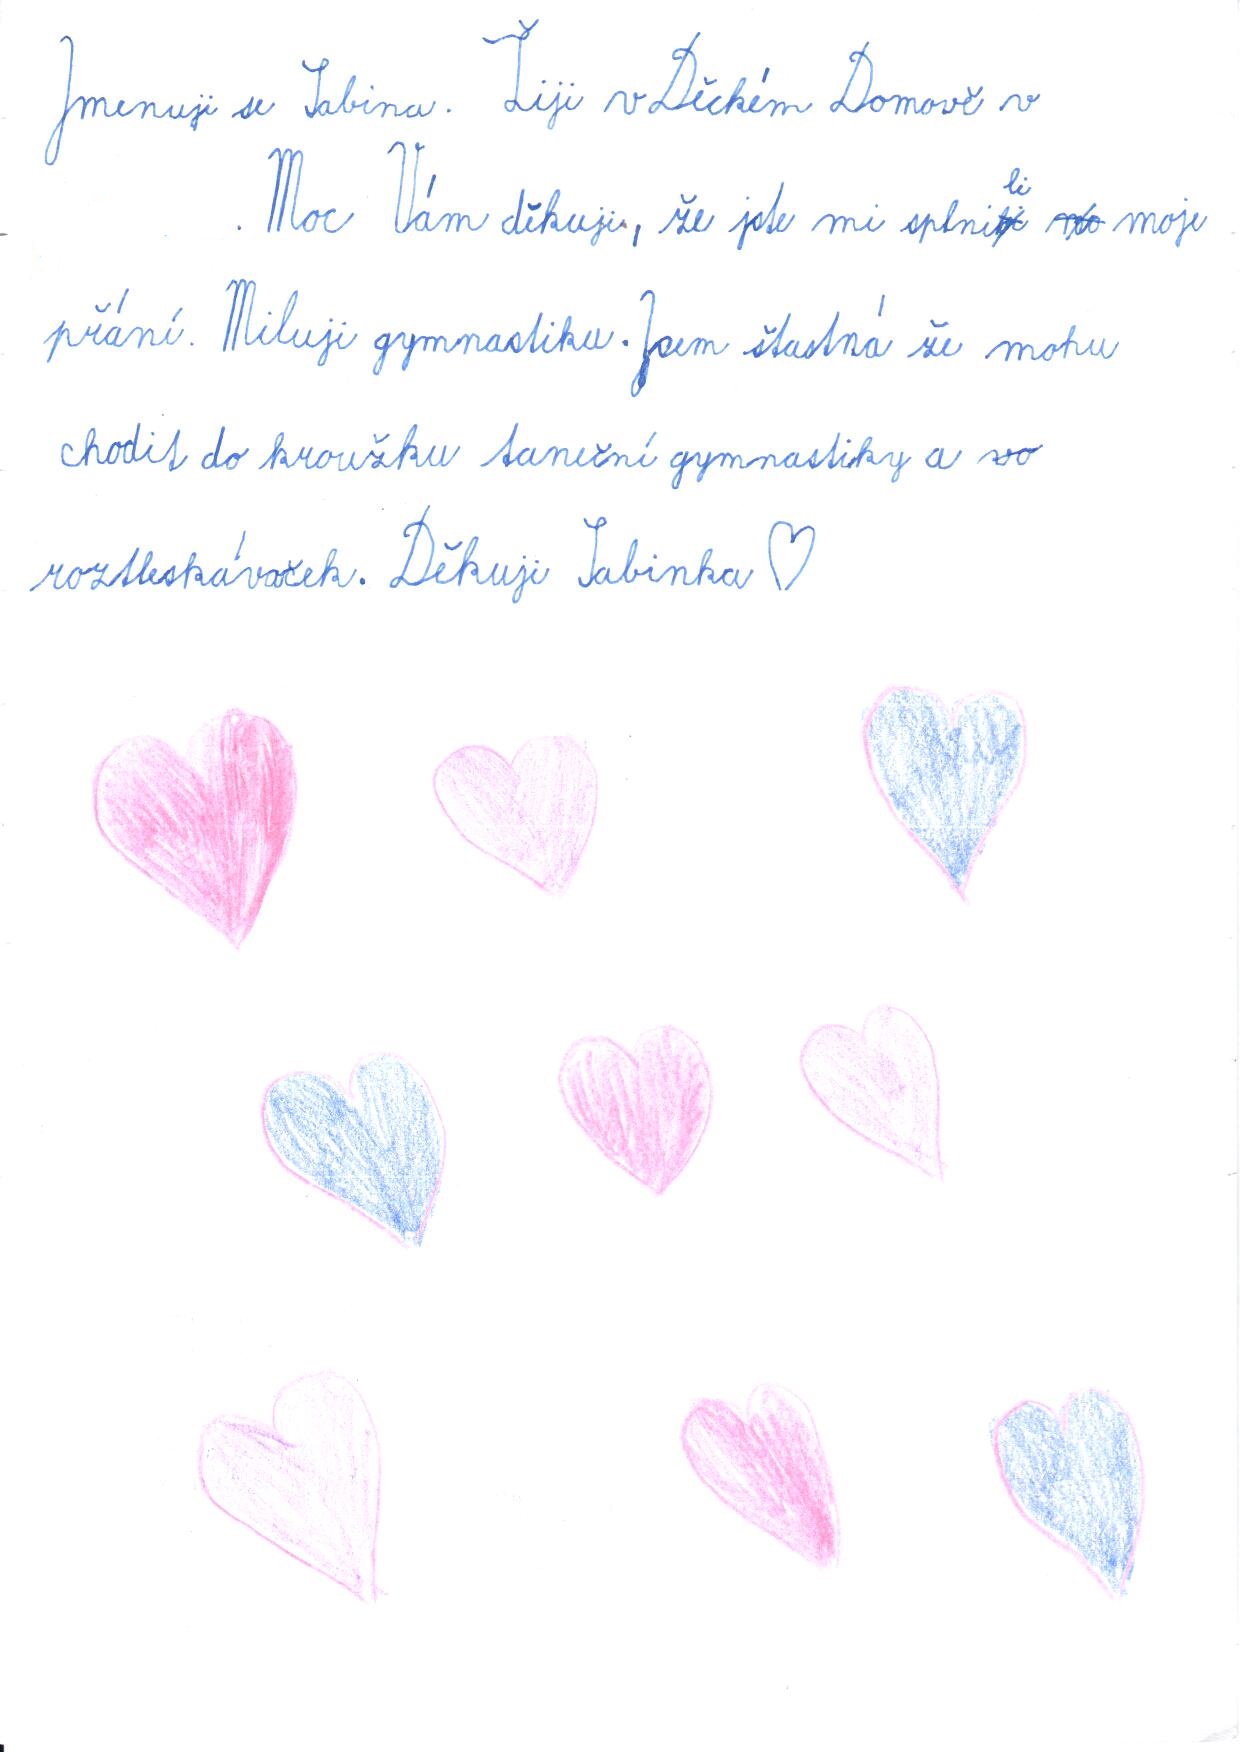 Jmenuji se Sabina. Žiji v Děckém Domově v
. Moc Vám děkuji, že jste mi splnili moje
přání. Miluji gymnastiku. Jsem štastná že mohu
chodit do kroužku taneční gymnastiky a
roztleskávaček. Děkuji Sabinka